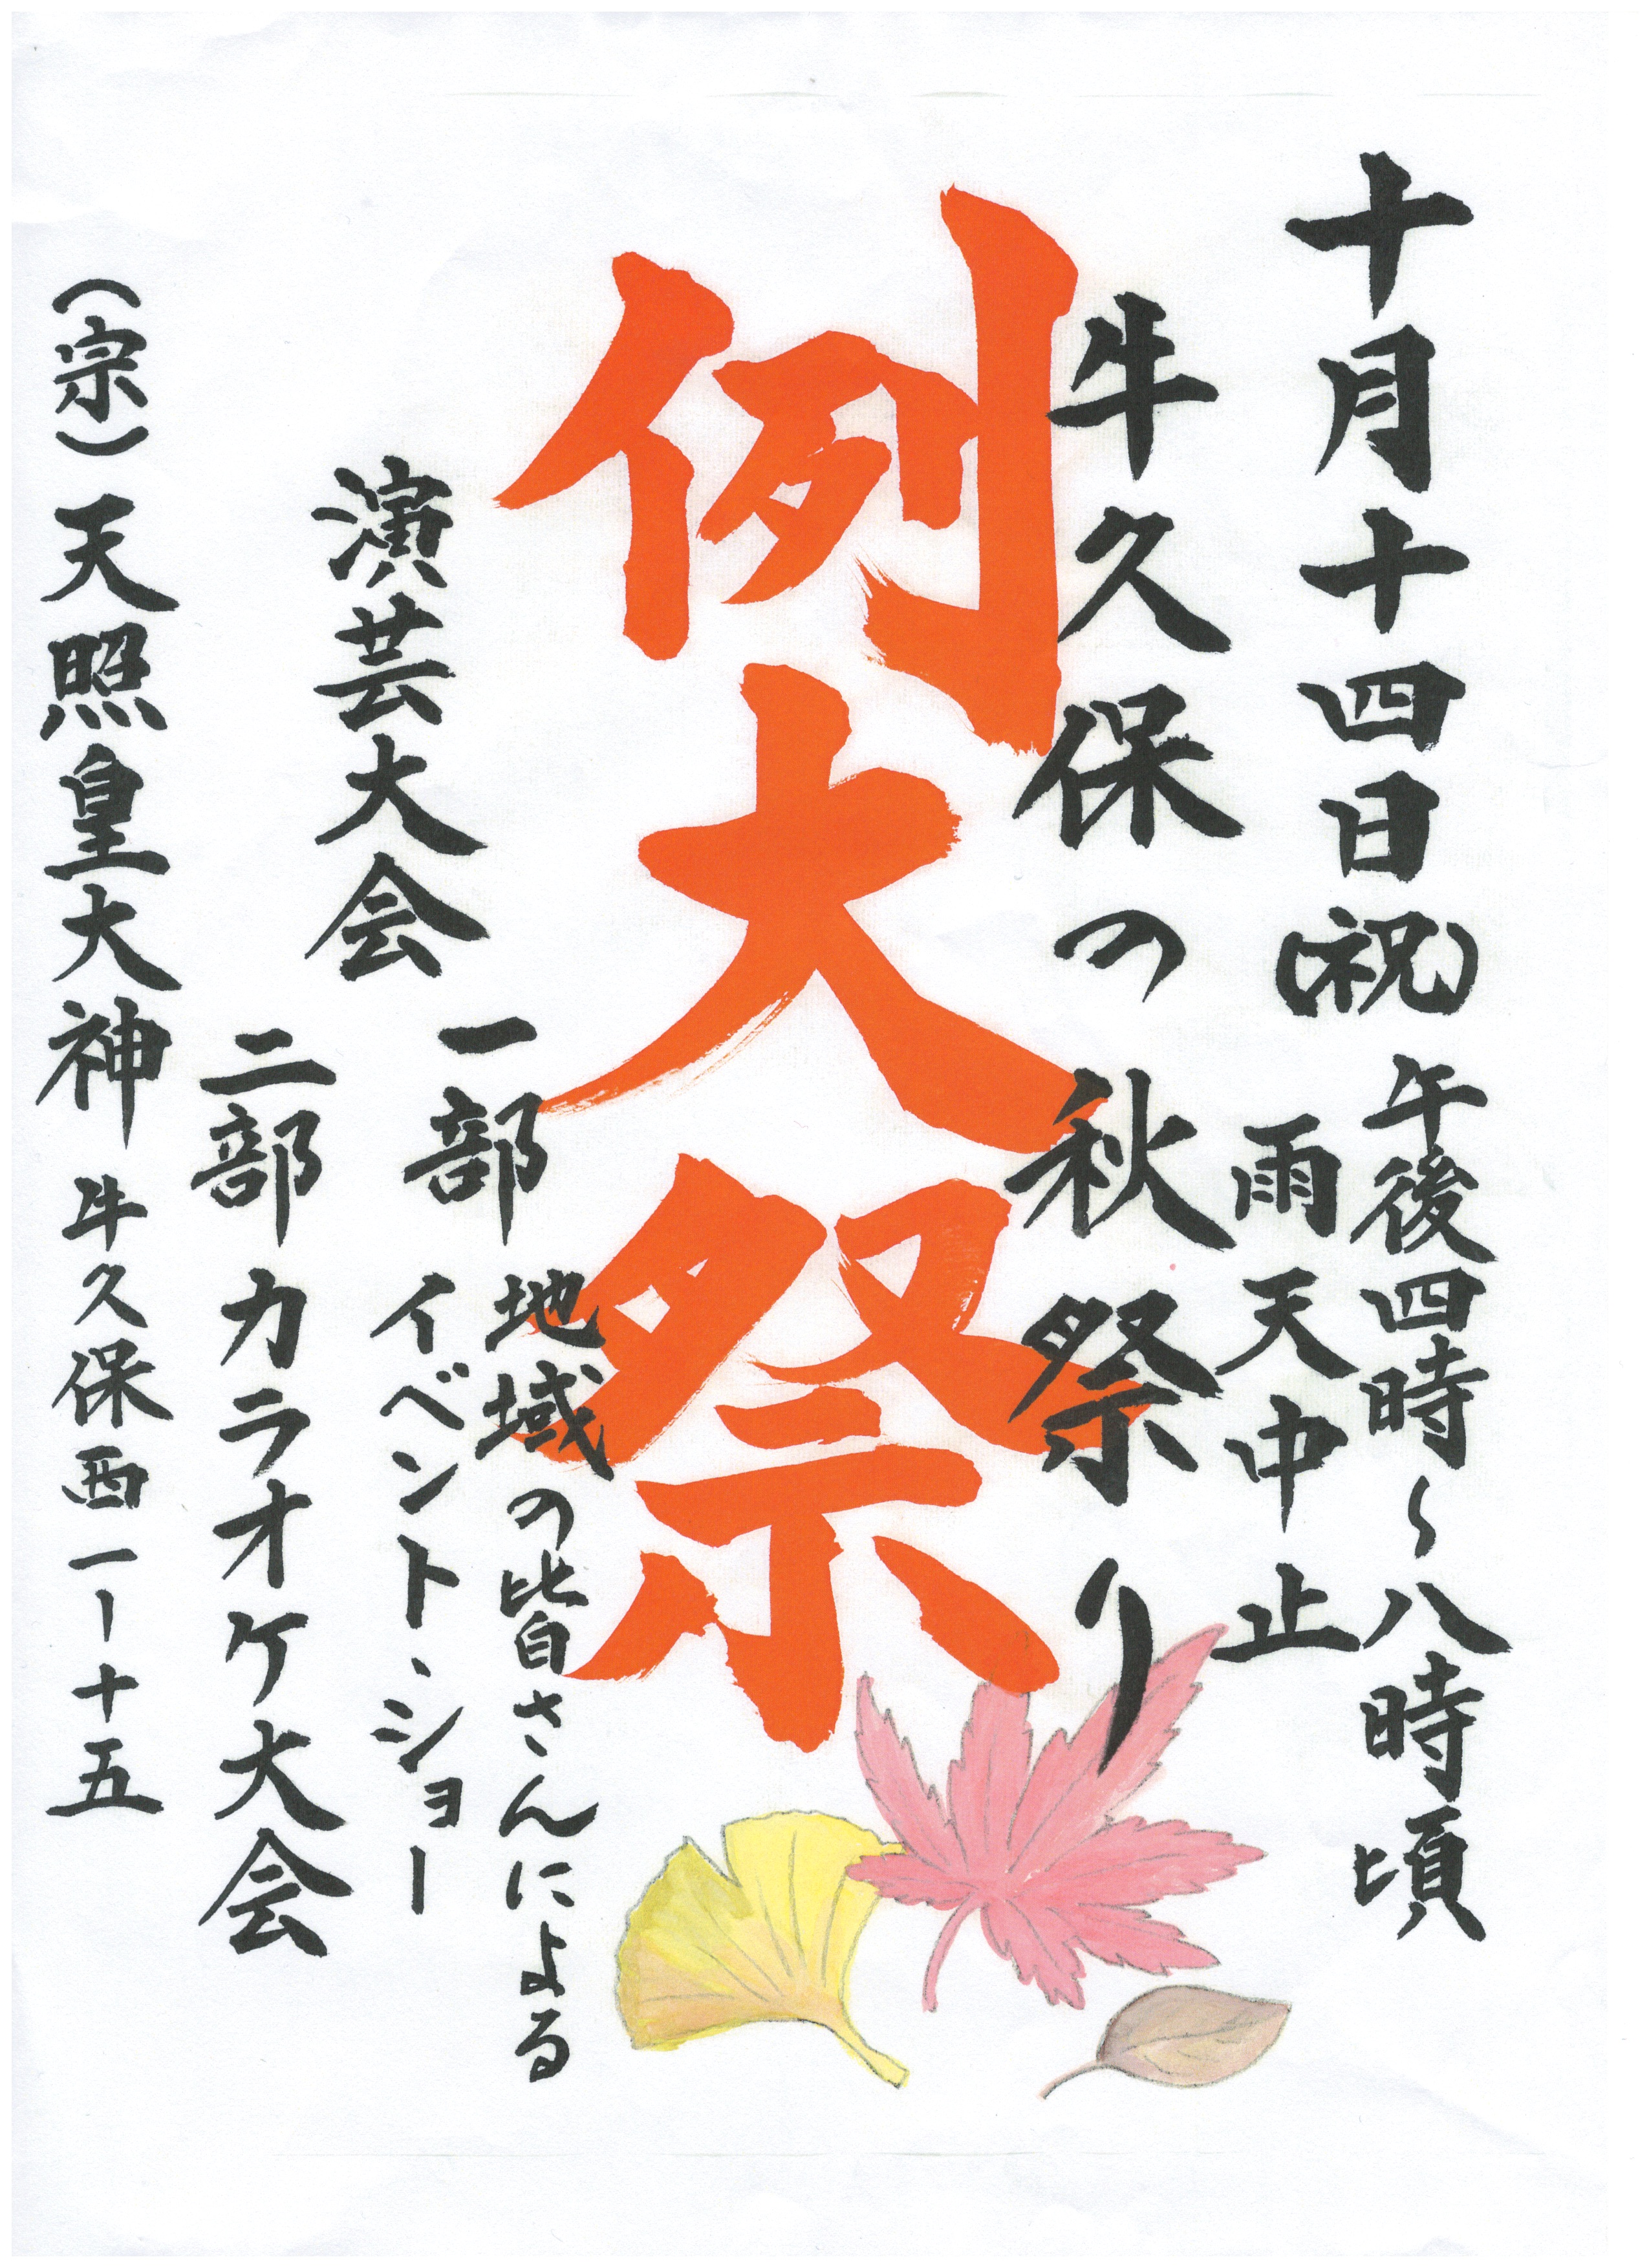 十月十四日(祝)
午後四時〜八時頃
雨天中止
牛久保の秋祭り
例大祭
演芸大会
一部
地域の皆さんによる
イベント・ショー
二部 カラオケ大会
(宗)天照皇大神 牛久保西一ー十五